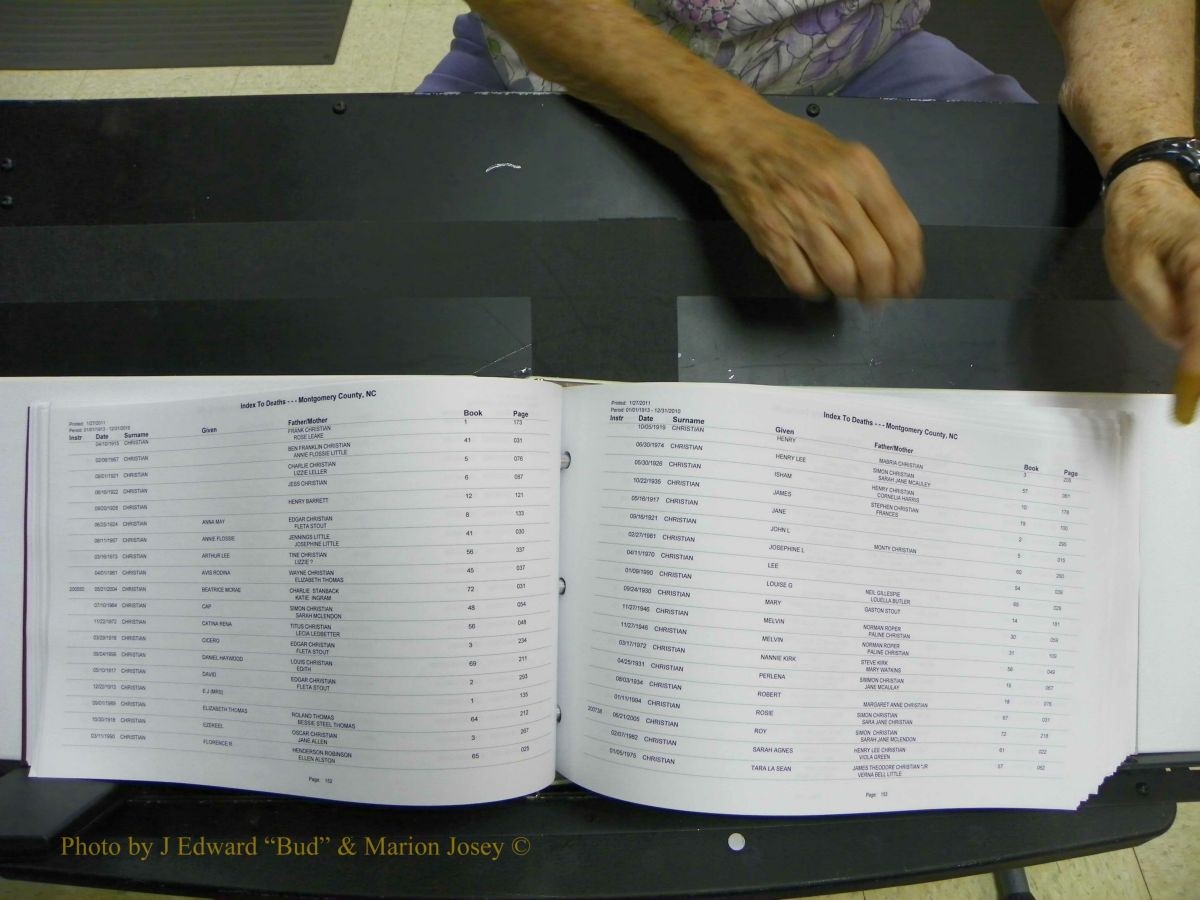 Index To Deaths - - - Montgomery County, NC
Printed: 1/27/2011
Period: 01/01/1913 - 12/31/2010
Instr Date Surname Given Father/Mother Book Page
04/10/1915 CHRISTIAN FRANK CHRISTIAN 1 173
ROSE LEAKE
02/08/1957 CHRISTIAN BEN FRANKLIN CHRISTIAN 41 031
ANNIE FLOSSIE LITTLE
CHRISTIAN CHARLIE CHRISTIAN 5 076
LIZZIE LELLER
CHRISTIAN JESS CHRISTIAN 6 087
CHRISTIAN HENRY BARRETT 12 121
CHRISTIAN ANNA MAY EDGAR CHRISTIAN 8 133
FLETA STOUT
CHRISTIAN ANNIE FLOSSIE JENNINGS LITTLE 41 030
JOSEPHINE LITTLE
03/16/1973 CHRISTIAN ARTHUR LEE TINE CHRISTIAN 56 337
LIZZIE ?
CHRISTIAN AVIS RODINA WAYNE CHRISTIAN 45 037
ELIZABETH THOMAS
05/21/2004 CHRISTIAN BEATRICE MCRAE CHARLIE STANBACK 72 031
KATIE INGRAM
CHRISTIAN CAP SIMON CHRISTIAN 48 054
SARAH MCLENDON
11/22/1972 CHRISTIAN CATINA RENA TITUS CHRISTIAN 56 048
LECIA LEDBETTER
CHRISTIAN CICERO EDGAR CHRISTIAN 3 234
FLETA STOUT
CHRISTIAN DANIEL HAYWOOD LOUIS CHRISTIAN 69 211
EDITH
05/10/1917 CHRISTIAN DAVID EDGAR CHRISTIAN 2 293
FLETA STOUT
12/22/1913 CHRISTIAN E J (MRS) 1 135
CHRISTIAN ELIZABETH THOMAS ROLAND THOMAS 64 212
BESSIE STEEL THOMAS
10/30/1918 CHRISTIAN EZEKEEL OSCAR CHRISTIAN 3 267
JANE ALLEN
03/11/1990 CHRISTIAN FLORENCE R HENDERSON ROBINSON 65 025
ELLEN ALSTON
Page: 152
Printed: 1/27/2011
Period: 01/01/1913 - 12/31/2010
Index To Deaths - - - Montgomery County, NC
Instr Date Surname Given Father/Mother Book Page
10/05/1919 CHRISTIAN HENRY MABRIA CHRISTIAN 3
06/30/1974 CHRISTIAN HENRY LEE SIMON CHRISTIAN 57 061
SARAH JANE MCAULEY
05/30/1926 CHRISTIAN ISHAM HENRY CHRISTIAN 10 178
CORNELIA HARRIS
10/22/1935 CHRISTIAN JAMES STEPHEN CHRISTIAN 19 100
FRANCES
05/16/1917 CHRISTIAN JANE 2 295
09/16/1921 CHRISTIAN JOHN L MONTY CHRISTIAN 5 015
02/27/1981 CHRISTIAN JOSEPHINE L 60
04/11/1970 CHRISTIAN LEE 54 039
01/09/1990 CHRISTIAN LOUISE G NEIL GILLESPIE 029
LOUELLA BUTLER
09/24/1930 CHRISTIAN MARY GASTON STOUT 14 181
11/27/1946 CHRISTIAN MELVIN NORMAN ROPER 30 059
PALINE CHRISTIAN
11/27/1946 CHRISTIAN MELVIN NORMAN ROPER 31 109
PALINE CHRISTIAN
03/17/1972 CHRISTIAN NANNIE KIRK STEVE KIRK 56 049
MARY WATKINS
04/25/1931 CHRISTIAN PERLENA SIMMON CHRISTIAN 067
JANE MCAULAY
08/03/1934 CHRISTIAN ROBERT MARGARET ANNE CHRISTIAN 18 076
01/11/1994 CHRISTIAN ROSIE SIMON CHRISTIAN 67 031
SARA JANE CHRISTIAN
200738 06/21/2005 CHRISTIAN ROY SIMON CHRISTIAN 72 218
SARAH JANE MCLENDON
02/07/1982 CHRISTIAN SARAH AGNES HENRY LEE CHRISTIAN 61 022
VIOLA GREEN
01/05/1975 CHRISTIAN TARA LA SEAN JAMES THEODORE CHRISTIAN *JR 57 062
VERNA BELL LITTLE
Page: 153
Photo by J Edward “Bud” & Marion Josey ©